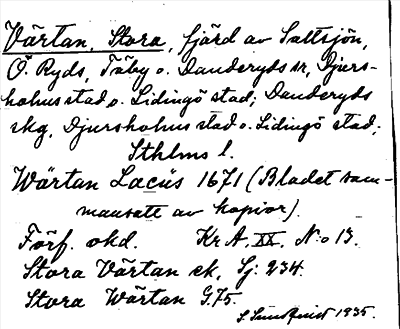 Värtan, Stora, fjärd av Saltsjön,
Ö. Ryds, Täby o. Danderyds sn, Djurs-
holms stad o. Lidingö stad; Danderyds
skg, Djursholms stad o. Lidingö stad;
Sthlms l.
Wärtan Lacüs 1671 (Bladet sam-
mansatt av kopior).
Förf. okd. Kr A. XX. N:o 13.
Stora Värtan ek, Sj: 234.
Stora Wärtan G.75.
S. Sundquist 1935.